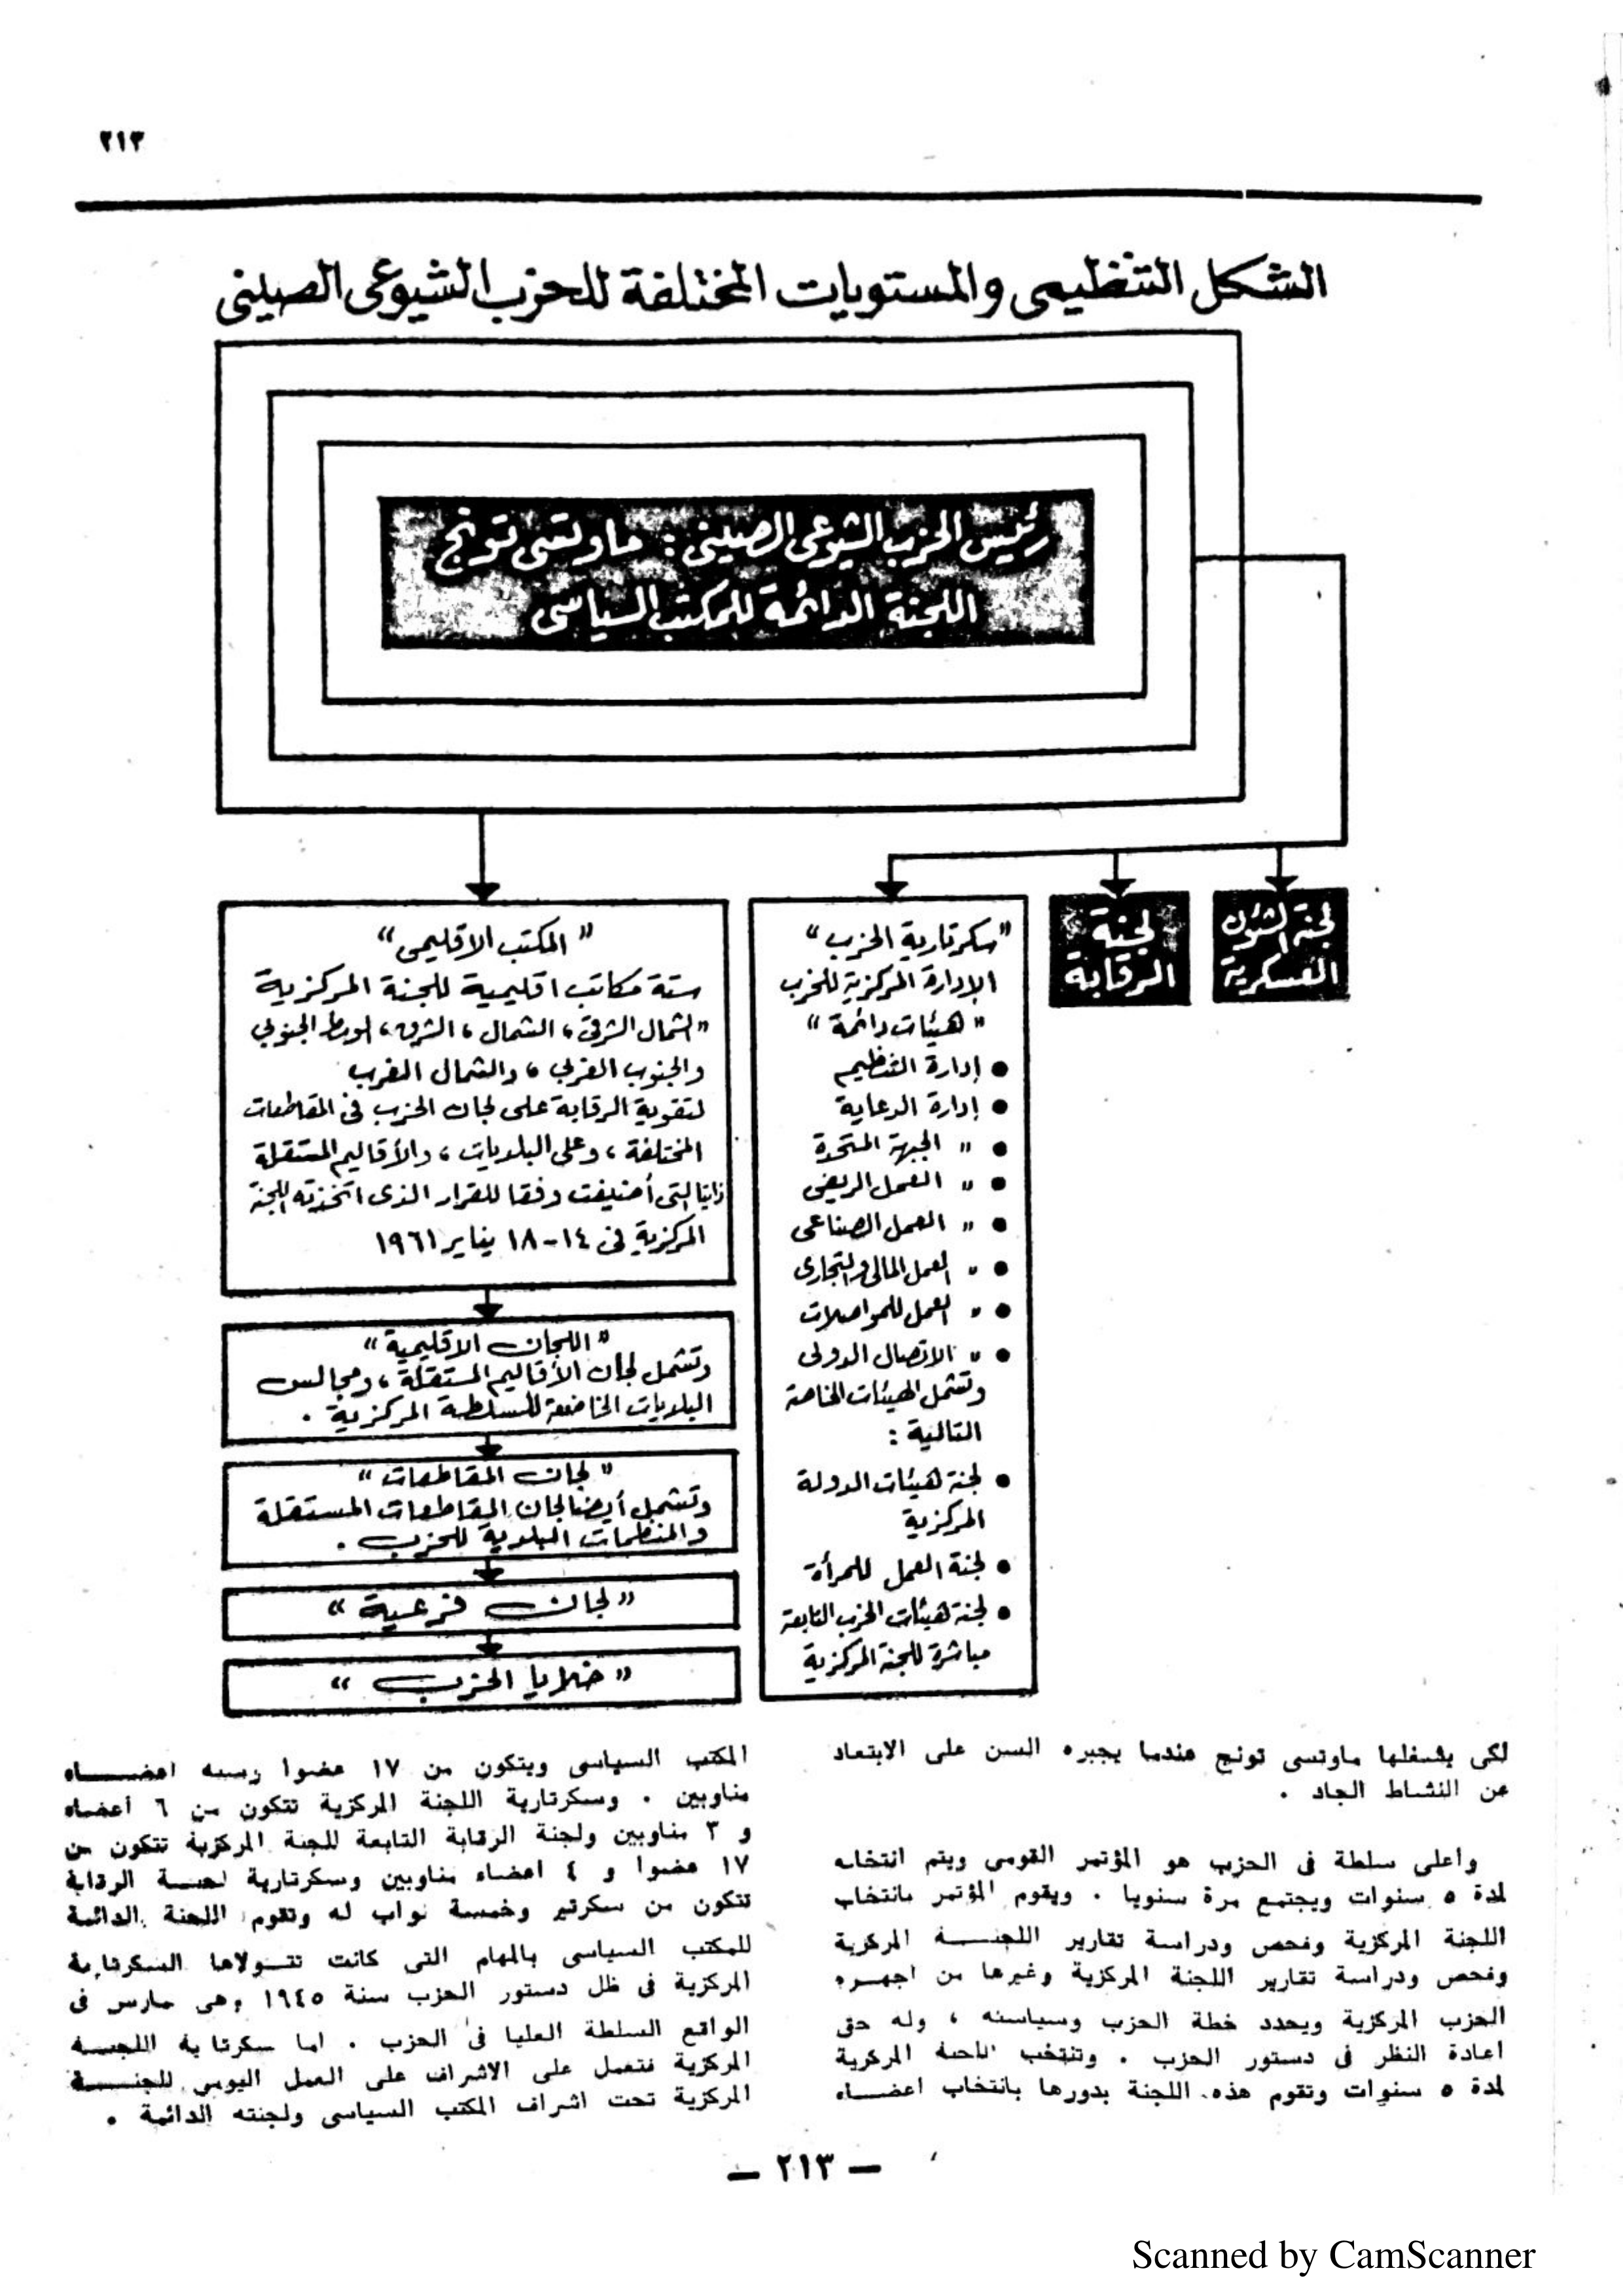 ٢١٣
الشكل التنظيمى والمستويات المختلفة للحزب الشيوعى الصينى
رئيس الحزب الشيوعى الصينى : ماوتسى تونج
اللجنة الدائمة للمكتب السياسى
لجنة الشئون
العسكرية
لجنة
الرقابة
"سكرتارية الحزب"
الإدارة المركزية للحزب
"هيئات دائمة"
● إدارة التنظيم
● إدارة الدعاية
● " الجبهة المتحدة
● " العمل الريفى
● " العمل الصناعى
● " العمل المالى والتجارى
● " العمل للمواصلات
● " الاتصال الدولى
وتشمل الهيئات الخاصة
التالية :
● لجنة هيئات الدولة
المركزية
● لجنة العمل للمرأة
● لجنة هيئات الحزب التابعة
مباشرة للجنة المركزية
"المكتب الاقليمى"
ستة مكاتب اقليمية للجنة المركزية
"الشمال الشرقى، الشمال، الشرق، الوسط الجنوبي
والجنوب الغربي، والشمال الغرب
لتقوية الرقابة على لجان الحزب فى المقاطعات
المختلفة، وعلى البلديات، والأقاليم المستقلة
ذاتيا التى أضيفت وفقا للقرار الذى اتخذته اللجنة
المركزية فى ١٤-١٨ يناير ١٩٦١
"اللجان الاقليمية"
وتشمل لجان الأقاليم المستقلة، ومجالس
البلديات الخاضعة للسلطة المركزية .
"لجان المقاطعات"
وتشمل أيضا لجان المقاطعات المستقلة
والمنظمات البلدية للحزب .
"لجان فرعية"
"خلايا الحزب"
لكى يشغلها ماوتسى تونج عندما يجبره السن على الابتعاد
عن النشاط الجاد .
واعلى سلطة فى الحزب هو المؤتمر القومى ويتم انتخابه
لمدة ٥ سنوات ويجتمع مرة سنويا . ويقوم المؤتمر بانتخاب
اللجنة المركزية وفحص ودراسة تقارير اللجنـــة المركزية
وفحص ودراسة تقارير اللجنة المركزية وغيرها من اجهـزه
الحزب المركزية ويحدد خطة الحزب وسياسته ، وله حق
اعادة النظر فى دستور الحزب . وتنتخب اللجنة المركزية
لمدة ٥ سنوات وتقوم هذه اللجنة بدورها بانتخاب اعضـــاء
المكتب السياسى ويتكون من ١٧ عضوا وستة اعضـــاء
مناوبين . وسكرتارية اللجنة المركزية تتكون من ٦ أعضاء
و ٣ مناوبين ولجنة الرقابة التابعة للجنة المركزية تتكون من
١٧ عضوا و ٤ اعضاء مناوبين وسكرتارية لجنـــة الرقابة
تتكون من سكرتير وخمسة نواب له وتقوم اللجنة الدائمة
للمكتب السياسى بالمهام التى كانت تتـــولاها السكرتارية
المركزية فى ظل دستور الحزب سنة ١٩٤٥ وهى تمارس فى
الواقع السلطة العليا فى الحزب . اما سكرتارية اللجنـــة
المركزية فتعمل على الاشراف على العمل اليومى للجنـــة
المركزية تحت اشراف المكتب السياسى ولجنته الدائمة .
— ٢١٣ —
Scanned by CamScanner